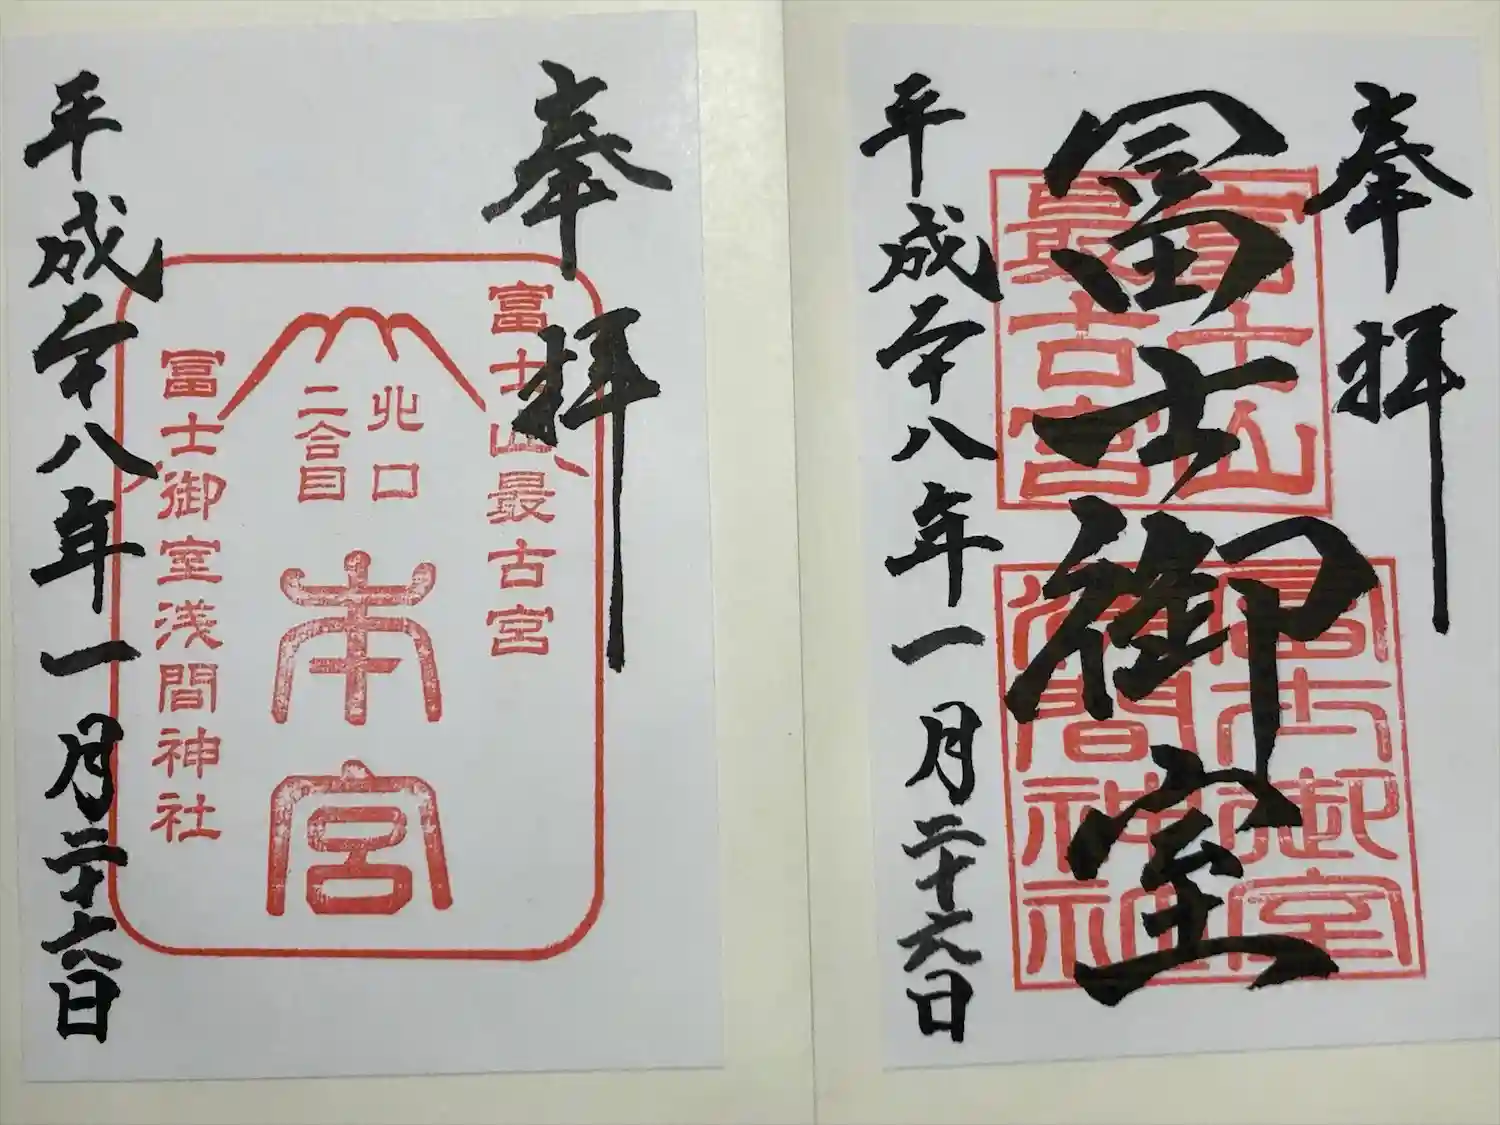 奉拝
冨士御室
富士山
最古宮
冨士御室
浅間神社
平成廿八年一月二十六日
奉拝
富士山最古宮
北口
二合目
本宮
冨士御室浅間神社
平成廿八年一月二十六日